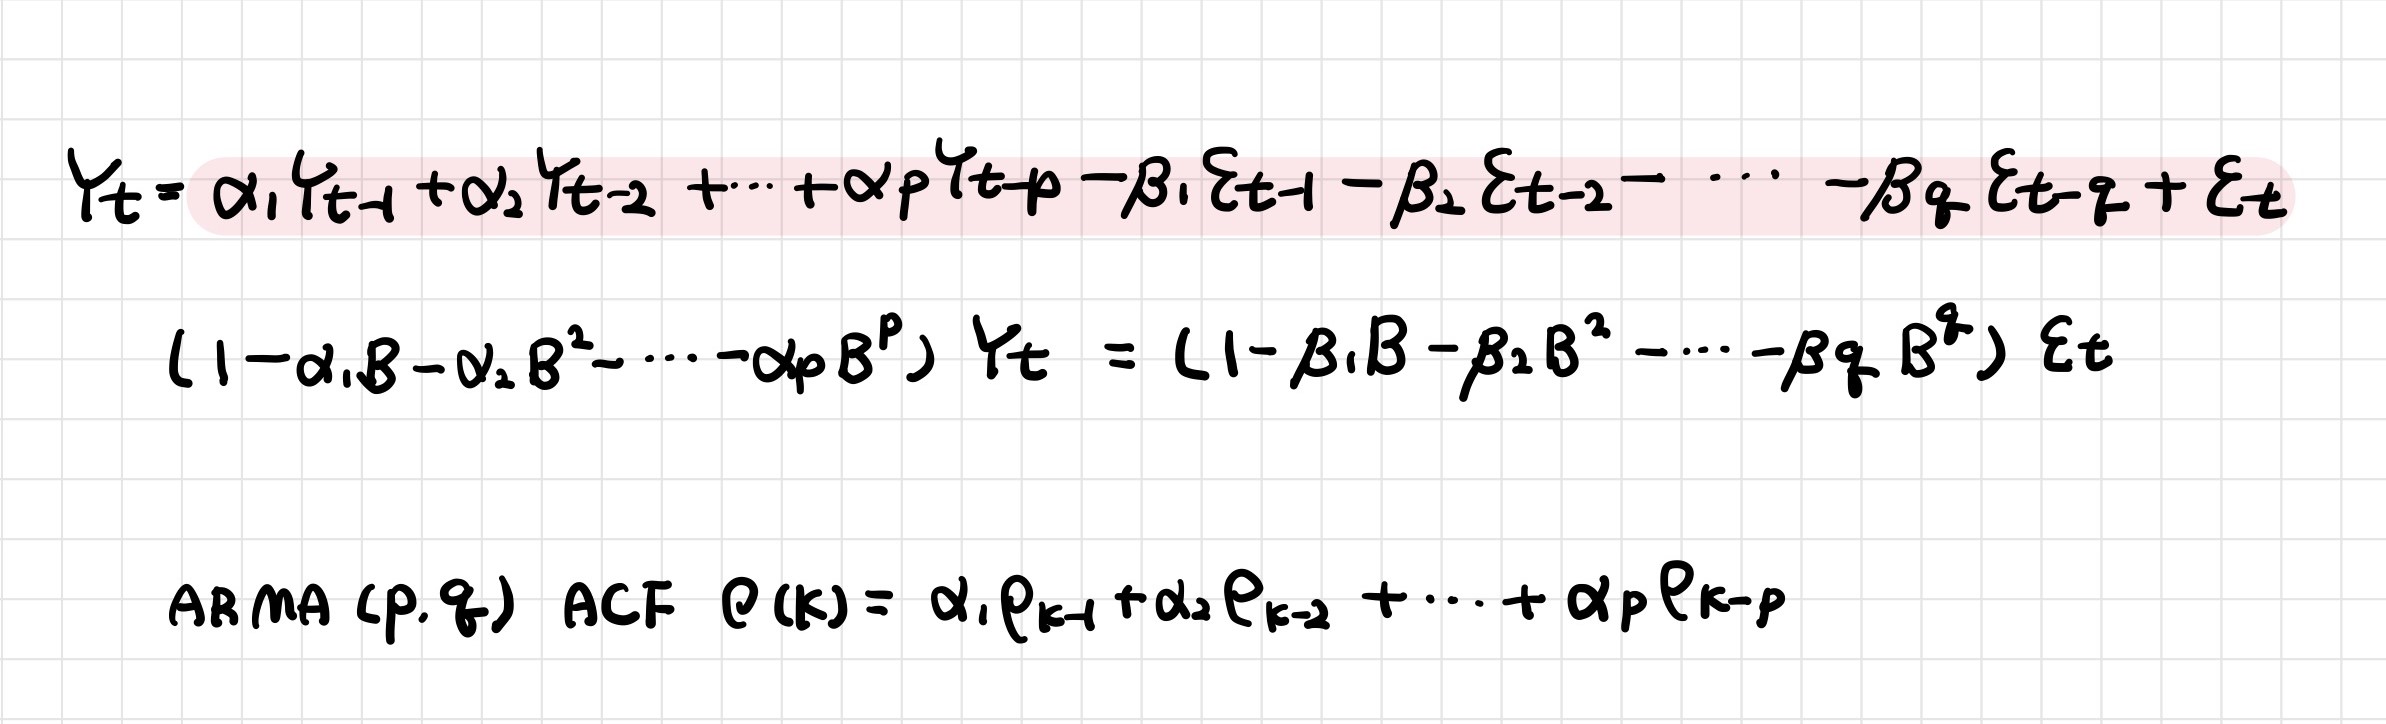 Yt = α₁Yt-1 + α₂Yt-2 + ··· + αpYt-p - β₁εt-1 - β₂εt-2 - ··· - βqεt-q + εt
(1 - α₁B - α₂B² - ···· - αpB^p) Yt = (1 - β₁B - β₂B² - ···· - βqB^q) εt
ARMA (p.q) ACF ρ(k) = α₁ρk-1 + α₂ρk-2 + ··· + αpρk-p